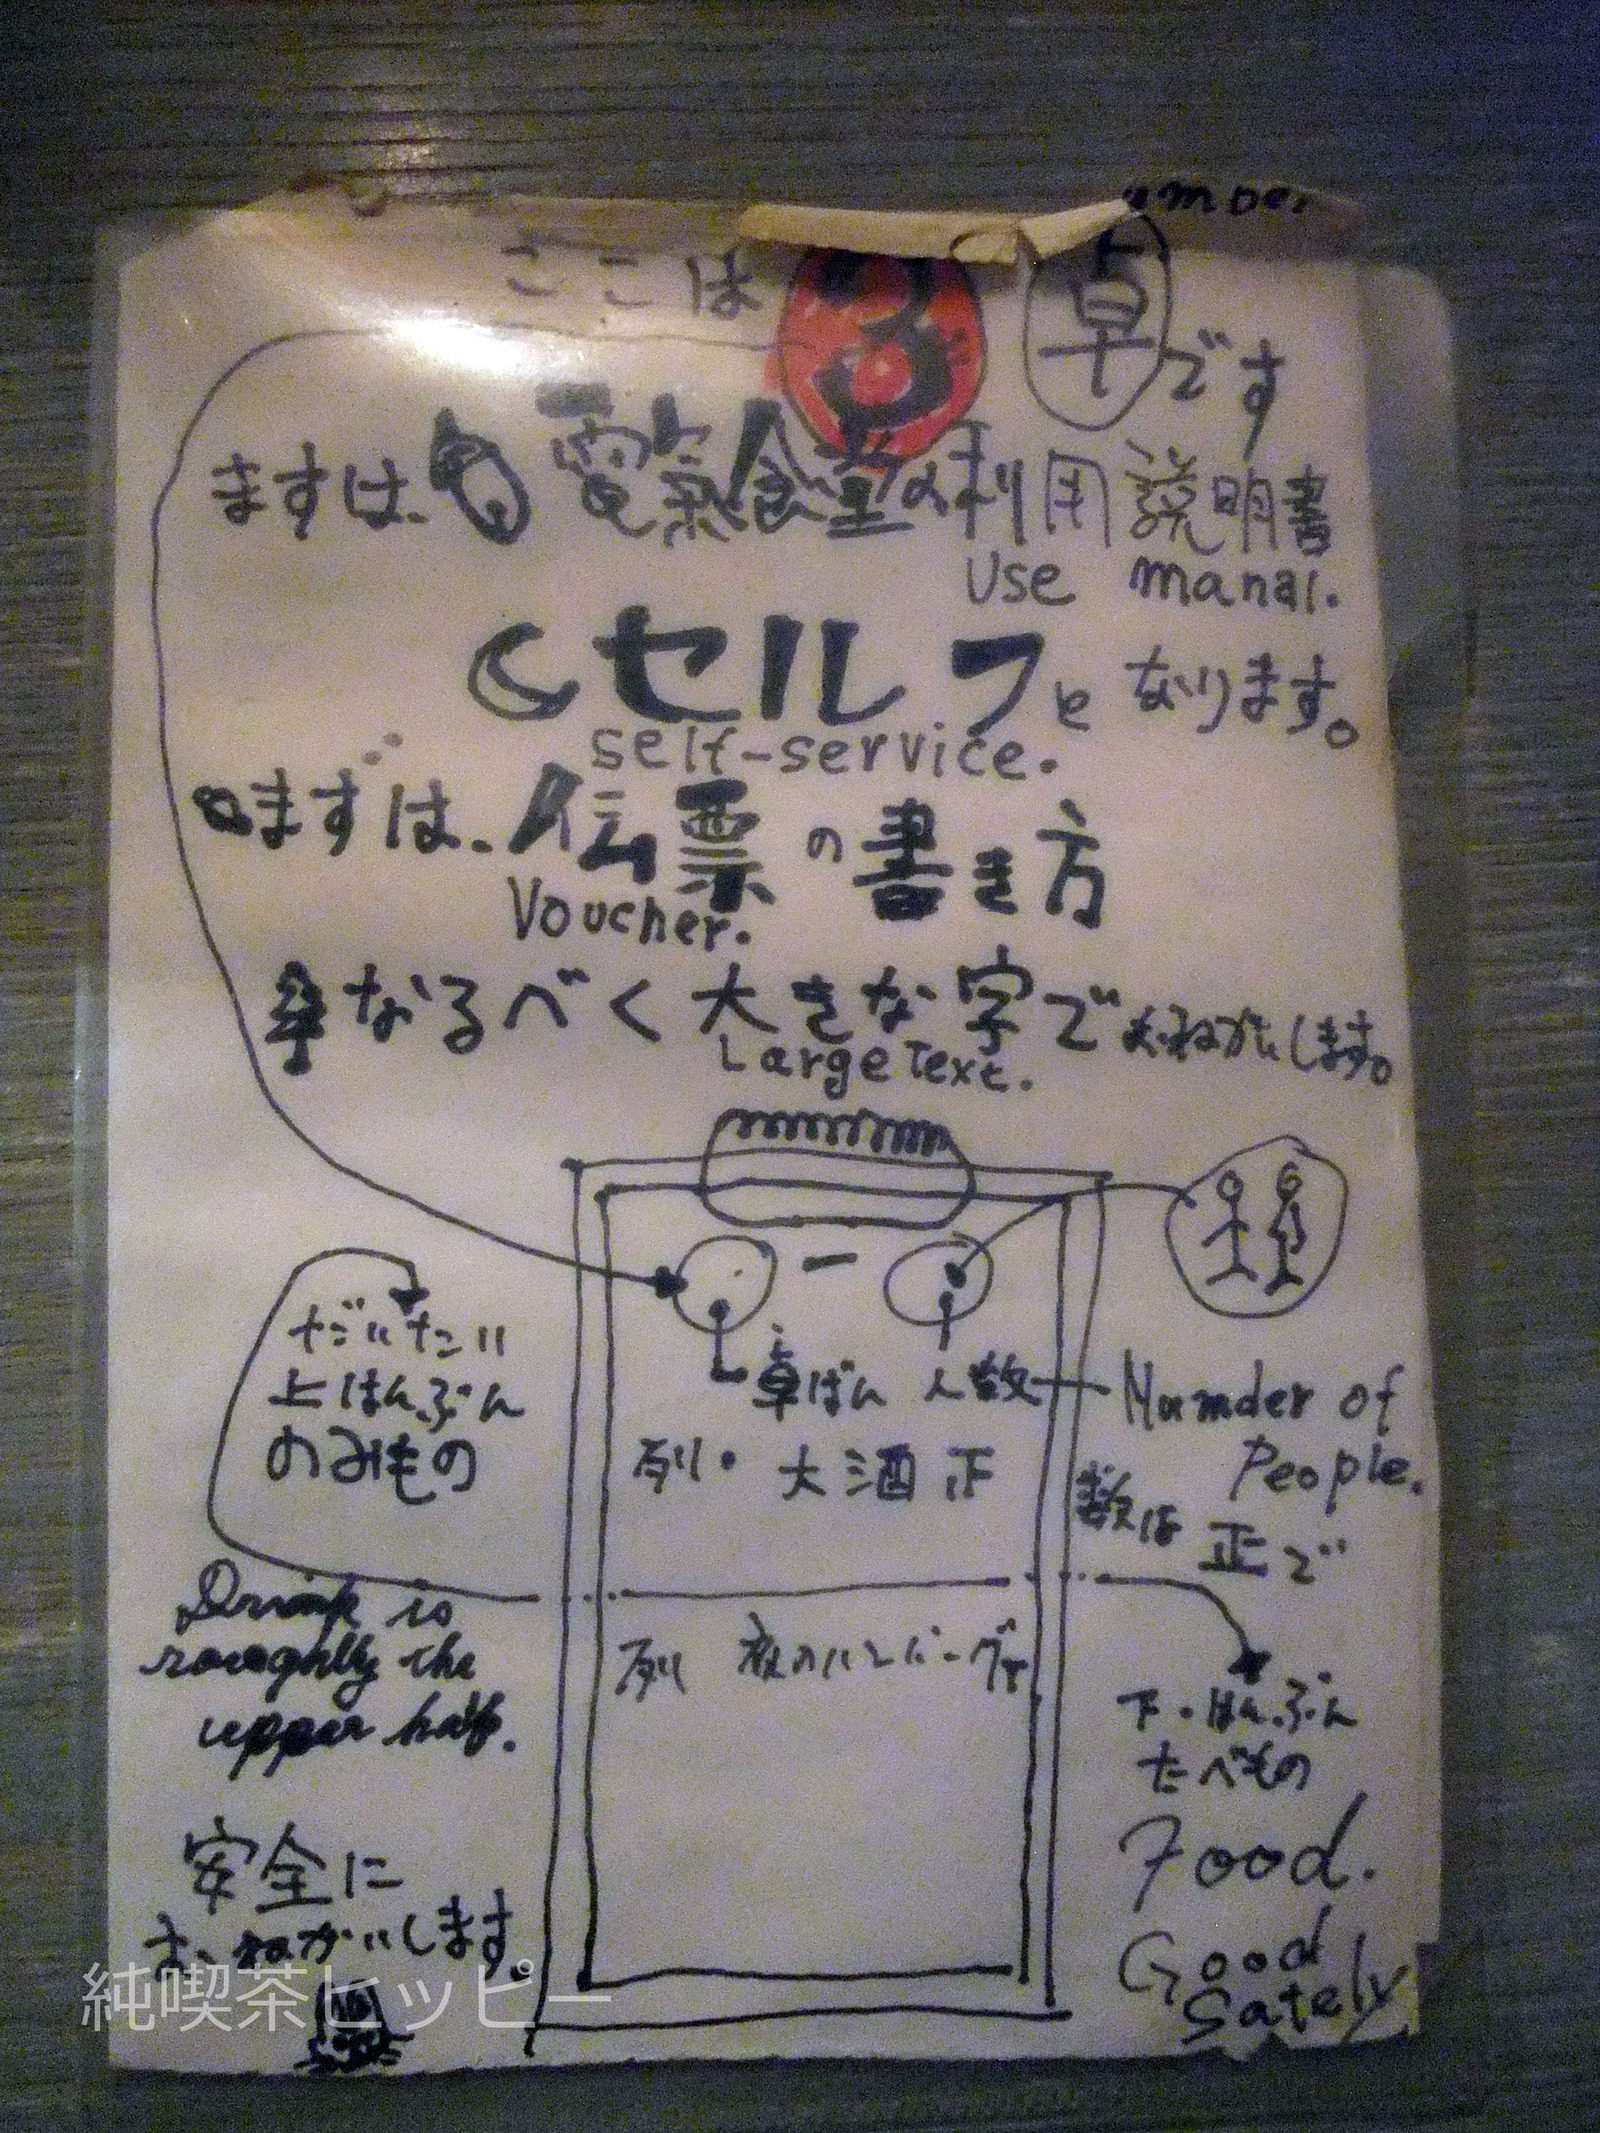 ここは 3 卓です
まずは、電氣食堂の利用説明書
Use manal.
セルフとなります。
self-service.
まずは、伝票の書き方
Voucher.
なるべく大きな字でおねがいします。
Large Text.
卓ばん 人数
Numder of
People.
だいたい
上はんぶん
のみもの
列・大酒 正
数は
正で
Drink is
roughly the
upper half.
列 夜のハンバーグ
下・はんぶん
たべもの
Food.
Good
Sately
安全に
おねがいします。
純喫茶ヒッピー